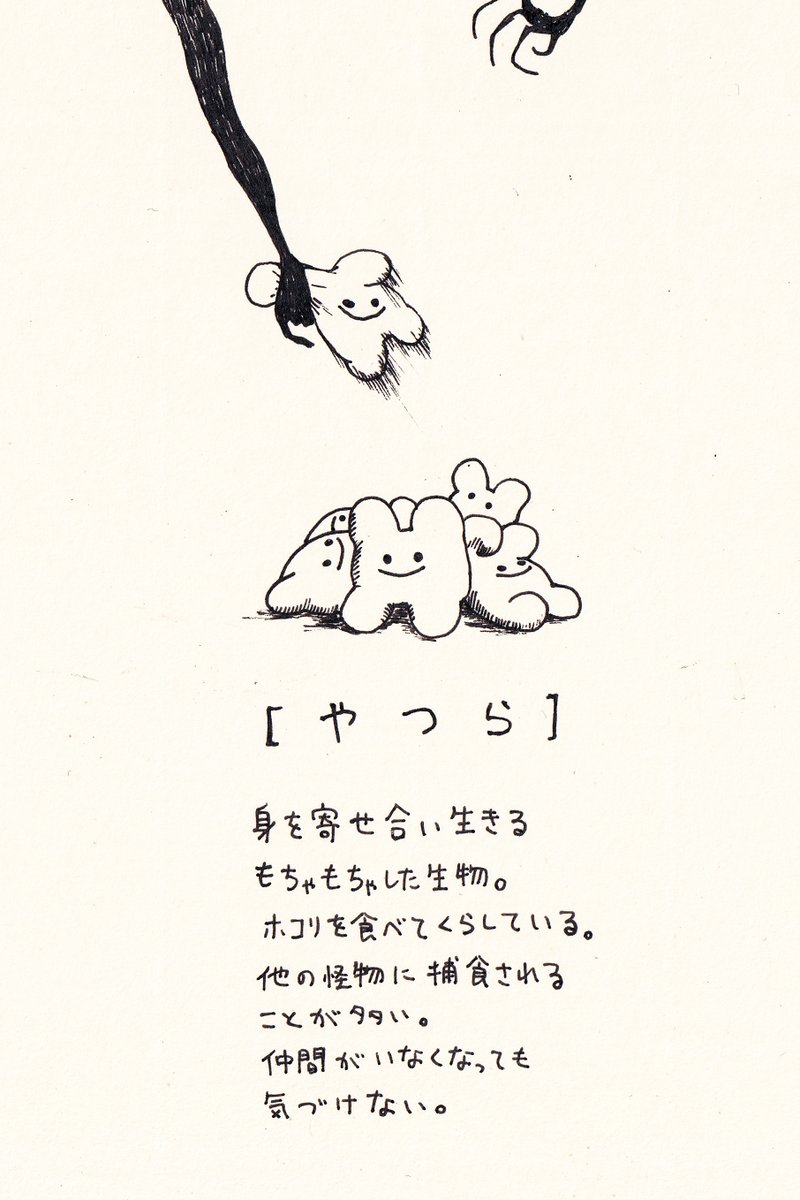 [やつら]
身を寄せ合い生きる
もちゃもちゃした生物。
ホコリを食べてくらしている。
他の怪物に捕食される
ことが多い。
仲間がいなくなっても
気づけない。